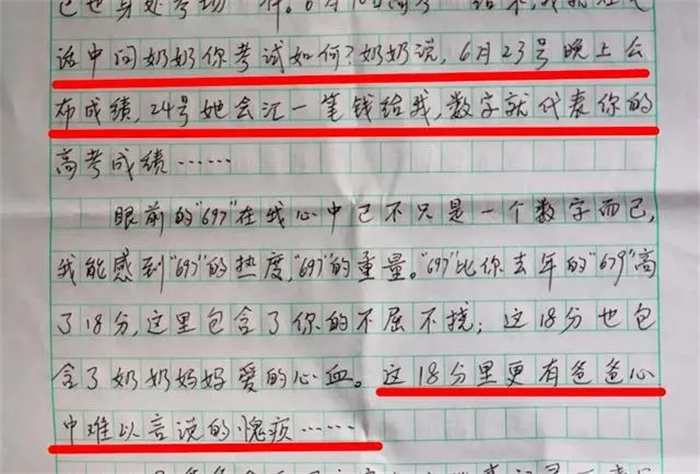 话中问奶奶你考试如何?奶奶说,6月23号晚上公
布成绩,24号她会汇一笔钱给我,数字就代表你的
高考成绩……
眼前的"697"在我心中已不只是一个数字而已,
我能感到"697"的热度,"697"的重量。"697"比你去年的"679"高
了18分,这里包含了你的不屈不挠;这18分也包
含了奶奶妈妈爱的心血。这18分里更有爸爸心
中难以言说的愧疚……